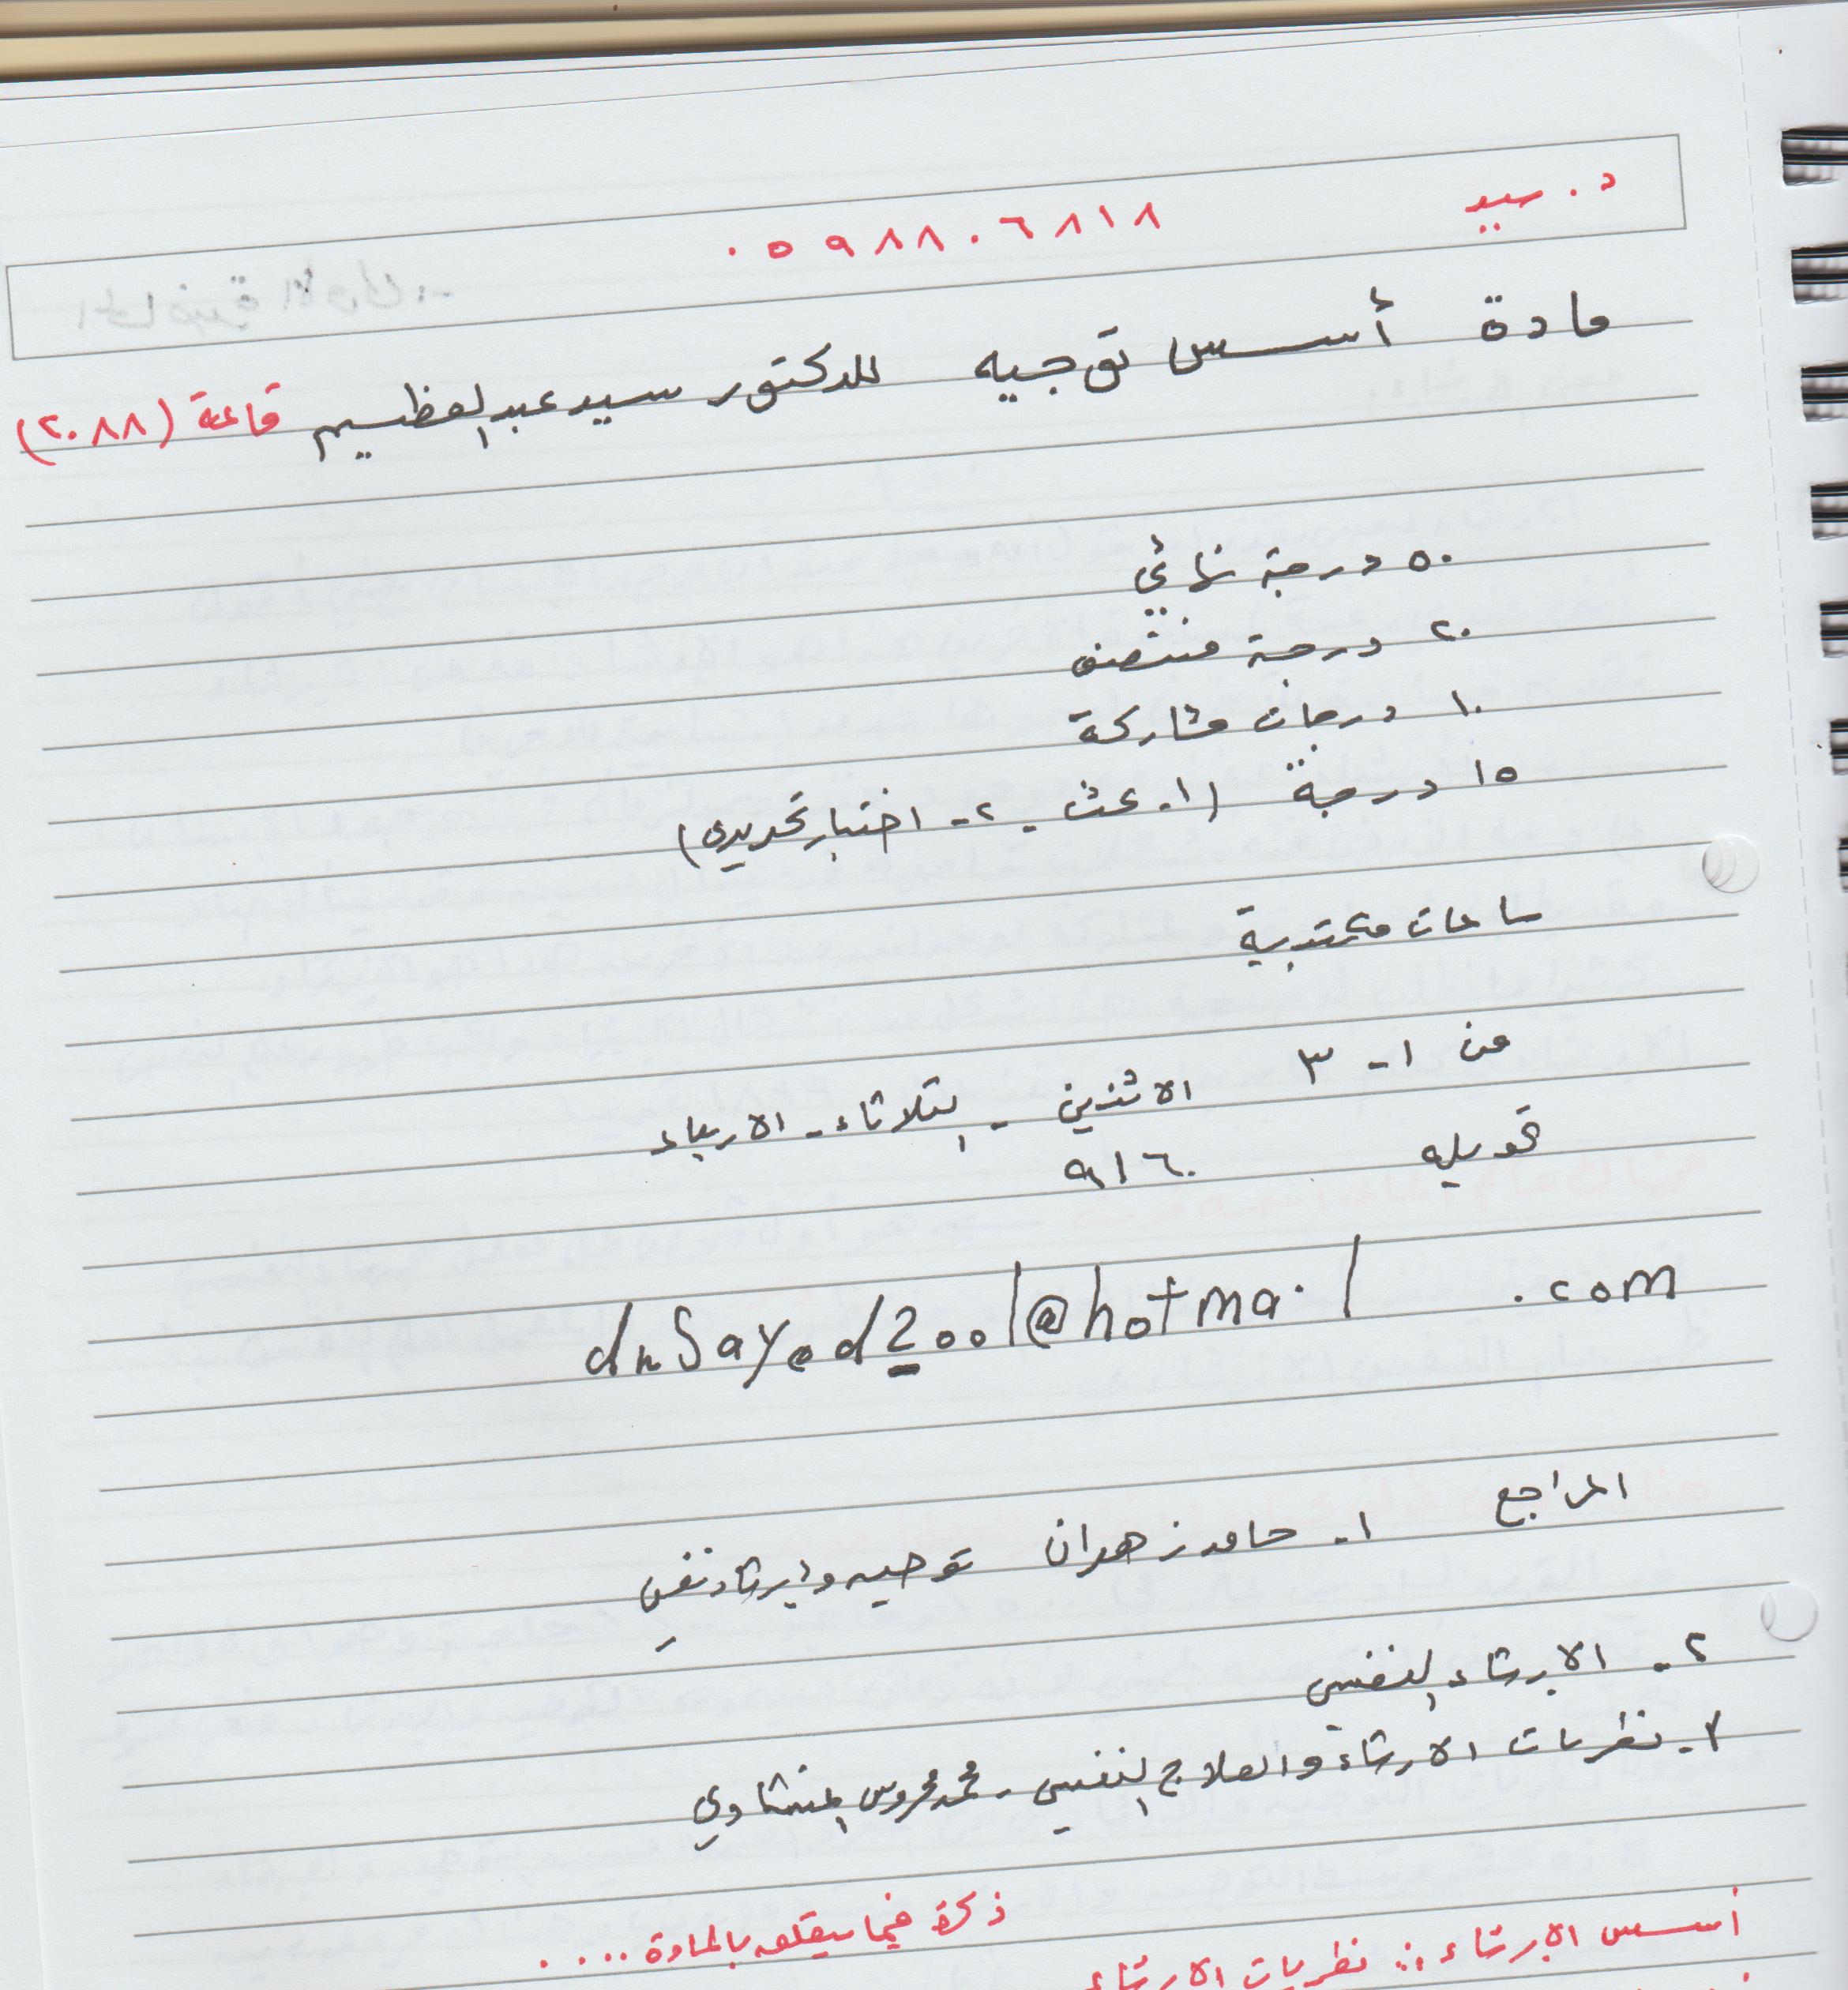 د. سيد ٠٥٩٨٨٠٦٨١٨
مادة أسس توجيه للدكتور سيد عبدالعظيم قاعة (٢٠٨٨)
٥٠ درجة نهائي
٢٠ درجة منتصف
١٠ درجات مشاركة
١٥ درجة (١- بحث - ٢- اختبار تحريري)
ساعات مكتبية
من ١ - ٣ الاثنين - الثلاثاء - الاربعاء
تحويله ٩١٦٠
drSayed2001@hotmail.com
المراجع ١- حامد زهران توجيه وإرشاد نفسي
٢- الإرشاد النفسي
٣- نظريات الارشاد والعلاج النفسي - محمد محروس الشناوي
ذكرة فيما يتعلق بالمادة ....
أسس الإرشاد :: نظريات الارشاد